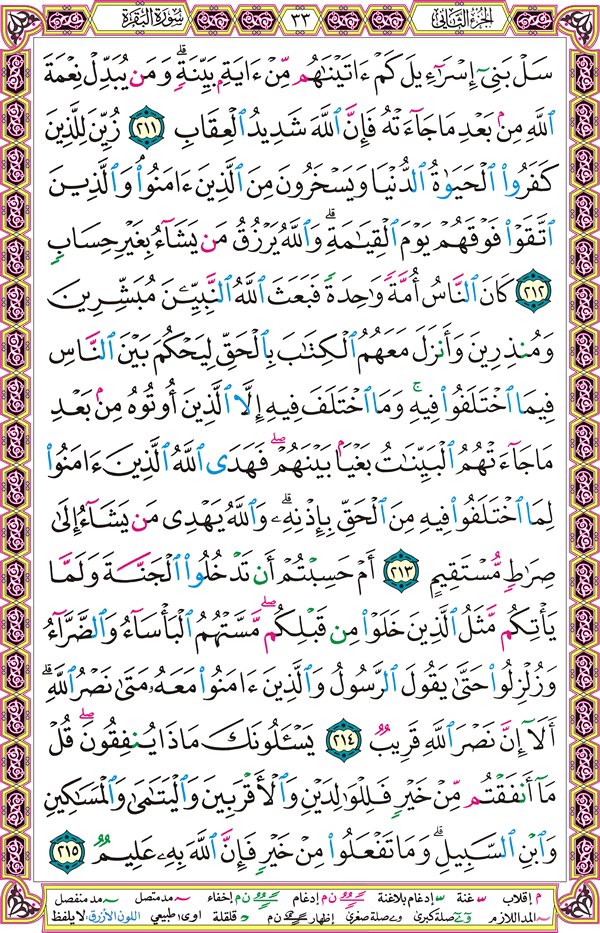 الجزء الثاني ٣٣ سورة البقرة
سَلْ بَنِىٓ إِسْرَٰٓءِيلَ كَمْ ءَاتَيْنَٰهُم مِّنْ ءَايَةٍۭ بَيِّنَةٍۗ وَمَن يُبَدِّلْ نِعْمَةَ
ٱللَّهِ مِنۢ بَعْدِ مَا جَآءَتْهُ فَإِنَّ ٱللَّهَ شَدِيدُ ٱلْعِقَابِ ٢١١ زُيِّنَ لِلَّذِينَ
كَفَرُوا۟ ٱلْحَيَوٰةُ ٱلدُّنْيَا وَيَسْخَرُونَ مِنَ ٱلَّذِينَ ءَامَنُوا۟ۘ وَٱلَّذِينَ
ٱتَّقَوْا۟ فَوْقَهُمْ يَوْمَ ٱلْقِيَٰمَةِۗ وَٱللَّهُ يَرْزُقُ مَن يَشَآءُ بِغَيْرِ حِسَابٍ
٢١٢ كَانَ ٱلنَّاسُ أُمَّةً وَٰحِدَةً فَبَعَثَ ٱللَّهُ ٱلنَّبِيِّۦنَ مُبَشِّرِينَ
وَمُنذِرِينَ وَأَنزَلَ مَعَهُمُ ٱلْكِتَٰبَ بِٱلْحَقِّ لِيَحْكُمَ بَيْنَ ٱلنَّاسِ
فِيمَا ٱخْتَلَفُوا۟ فِيهِۚ وَمَا ٱخْتَلَفَ فِيهِ إِلَّا ٱلَّذِينَ أُوتُوهُ مِنۢ بَعْدِ
مَا جَآءَتْهُمُ ٱلْبَيِّنَٰتُ بَغْيًۢا بَيْنَهُمْۖ فَهَدَى ٱللَّهُ ٱلَّذِينَ ءَامَنُوا۟
لِمَا ٱخْتَلَفُوا۟ فِيهِ مِنَ ٱلْحَقِّ بِإِذْنِهِۦۗ وَٱللَّهُ يَهْدِى مَن يَشَآءُ إِلَىٰ
صِرَٰطٍ مُّسْتَقِيمٍ ٢١٣ أَمْ حَسِبْتُمْ أَن تَدْخُلُوا۟ ٱلْجَنَّةَ وَلَمَّا
يَأْتِكُم مَّثَلُ ٱلَّذِينَ خَلَوْا۟ مِن قَبْلِكُمۖ مَّسَّتْهُمُ ٱلْبَأْسَآءُ وَٱلضَّرَّآءُ
وَزُلْزِلُوا۟ حَتَّىٰ يَقُولَ ٱلرَّسُولُ وَٱلَّذِينَ ءَامَنُوا۟ مَعَهُۥ مَتَىٰ نَصْرُ ٱللَّهِۗ
أَلَآ إِنَّ نَصْرَ ٱللَّهِ قَرِيبٌ ٢١٤ يَسْـَٔلُونَكَ مَاذَا يُنفِقُونَۖ قُلْ
مَآ أَنفَقْتُم مِّنْ خَيْرٍ فَلِلْوَٰلِدَيْنِ وَٱلْأَقْرَبِينَ وَٱلْيَتَٰمَىٰ وَٱلْمَسَٰكِينِ
وَٱبْنِ ٱلسَّبِيلِۗ وَمَا تَفْعَلُوا۟ مِنْ خَيْرٍ فَإِنَّ ٱللَّهَ بِهِۦ عَلِيمٌ ٢١٥
م إقلاب غنة إدغام بلاغنة ن م إدغام إخفاء مد متصل مد منفصل
المد اللازم صلة كبرى صلة صغرى إظهار ن م قلقلة اوى طبيعي اللون الأزرق: لا يلفظ